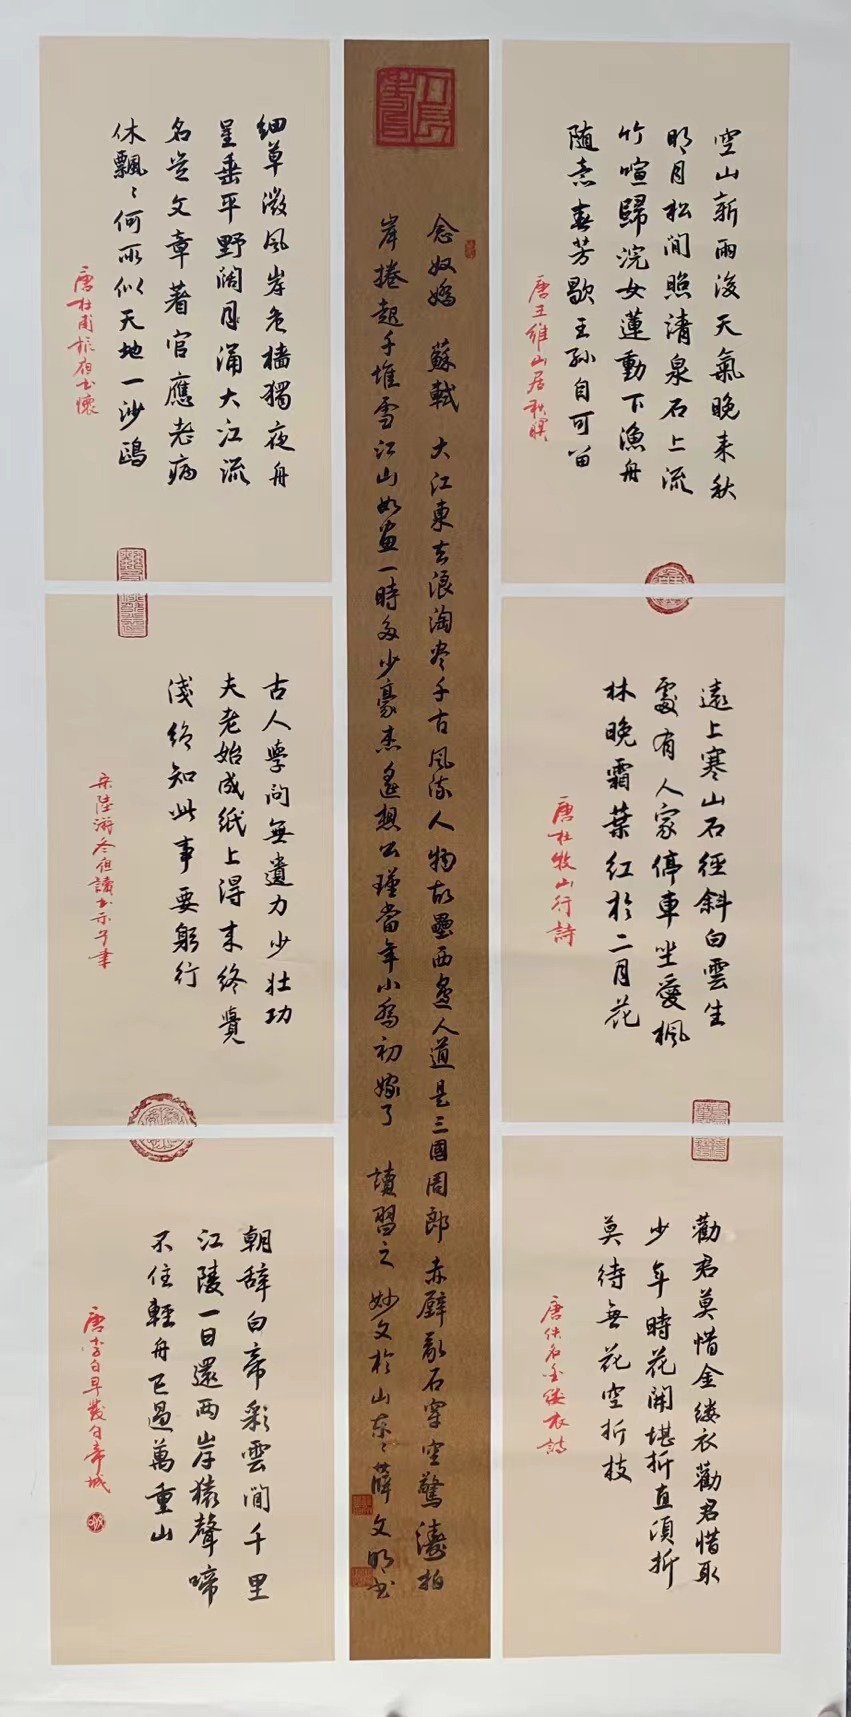 空山新雨後天氣晚来秋
明月松間照清泉石上流
竹喧歸浣女蓮動下漁舟
随意春芳歇王孫自可留
唐王維山居秋暝
遠上寒山石徑斜白雲生
處有人家停車坐愛楓
林晚霜葉红於二月花
唐杜牧山行詩
勸君莫惜金缕衣勸君惜取
少年時花開堪折直須折
莫待無花空折枝
唐佚名金缕衣詩
念奴嬌 蘇軾 大江東去浪淘尽千古風流人物故壘西邊人道是三國周郎赤壁亂石穿空驚濤拍
岸捲起千堆雪江山如畫一時多少豪杰遥想公瑾當年小喬初嫁了 讀習之 妙文於山东 薛文明书
细草微風岸危檣獨夜舟
星垂平野阔月涌大江流
名豈文章著官應老病
休飄〻何所似天地一沙鷗
唐杜甫旅夜书懷
古人學问無遺力少壮功
夫老始成纸上得来终覺
浅绝知此事要躬行
宋陸游冬夜讀书示子聿
朝辞白帝彩雲間千里
江陵一日還两岸猿聲啼
不住輕舟已過萬重山
唐李白早發白帝城